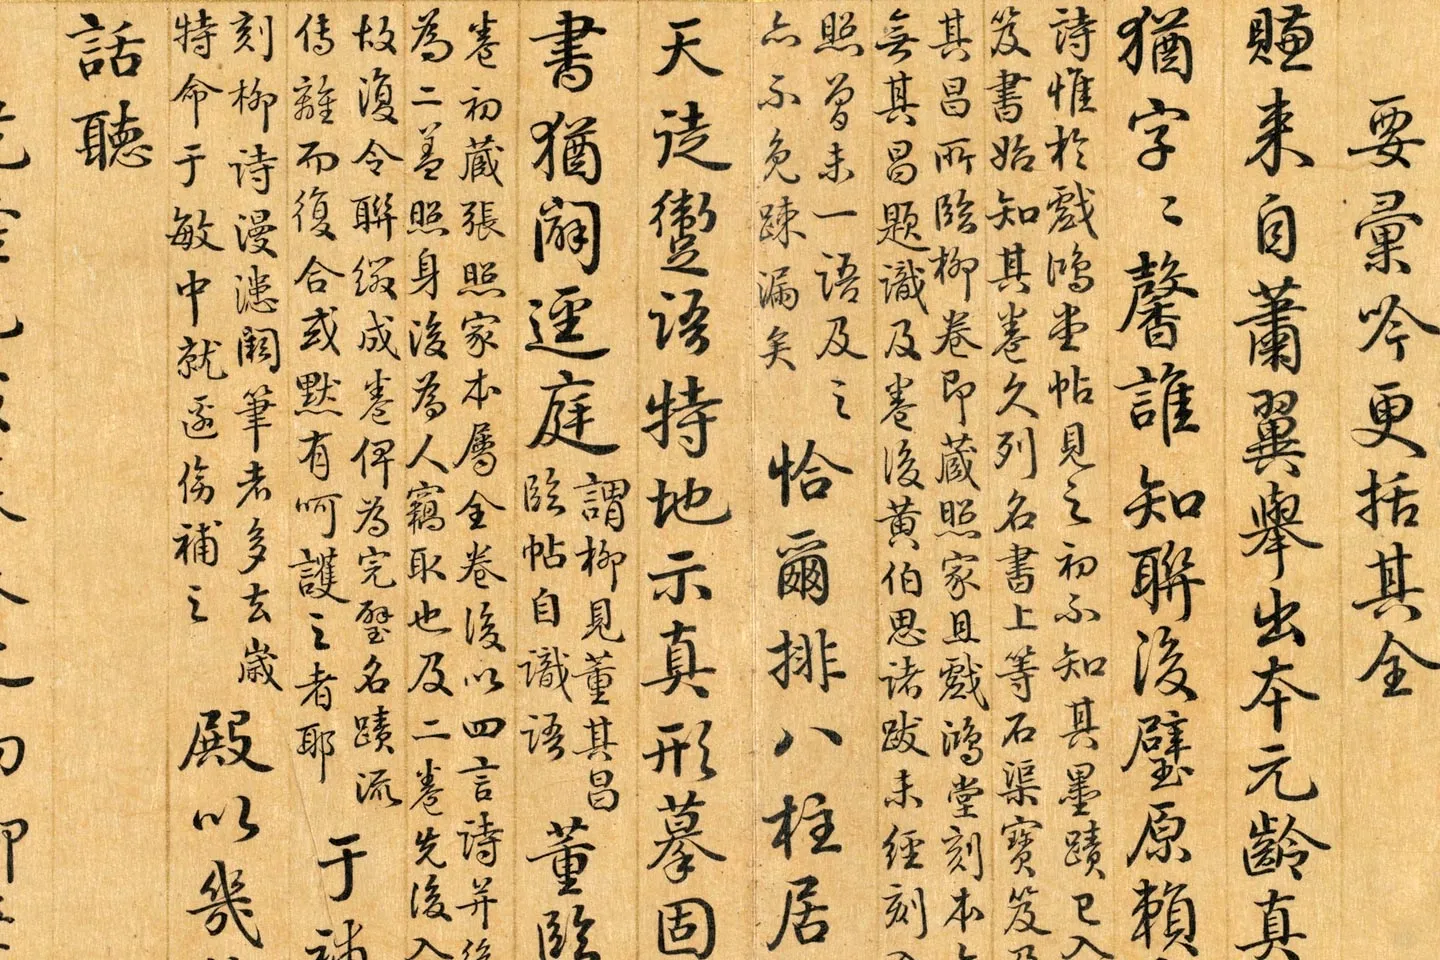 要彙吟更括其全
賺来自蕭翼舉出本元齡真
猶字〻馨誰知聯後璧原賴
詩惟於戲鴻堂帖見之初不知其墨蹟已入
笈書始知其卷久列名書上等石渠寶笈
其昌所臨柳卷即蔵照家且戲鴻堂刻本
無其昌題識及卷後黄伯思諸跋未經刻
照曽未一語及之
亦不免踈漏矣
恰爾排八柱居
天逵躗語特地示真形摹固
書猶闢逕庭
謂柳見董其昌
臨帖自識語
董臨
卷初蔵張照家本屬全卷後以四言詩并後
為二盖照身後為人竊取也及二卷先後入
故復令聯綴成卷俾為完璧名蹟流
傳離而復合或默有呵護之者耶
于
話聽
刻柳詩漫漶闕筆者多去歳
特命于敏中就邊傍補之
殿以幾